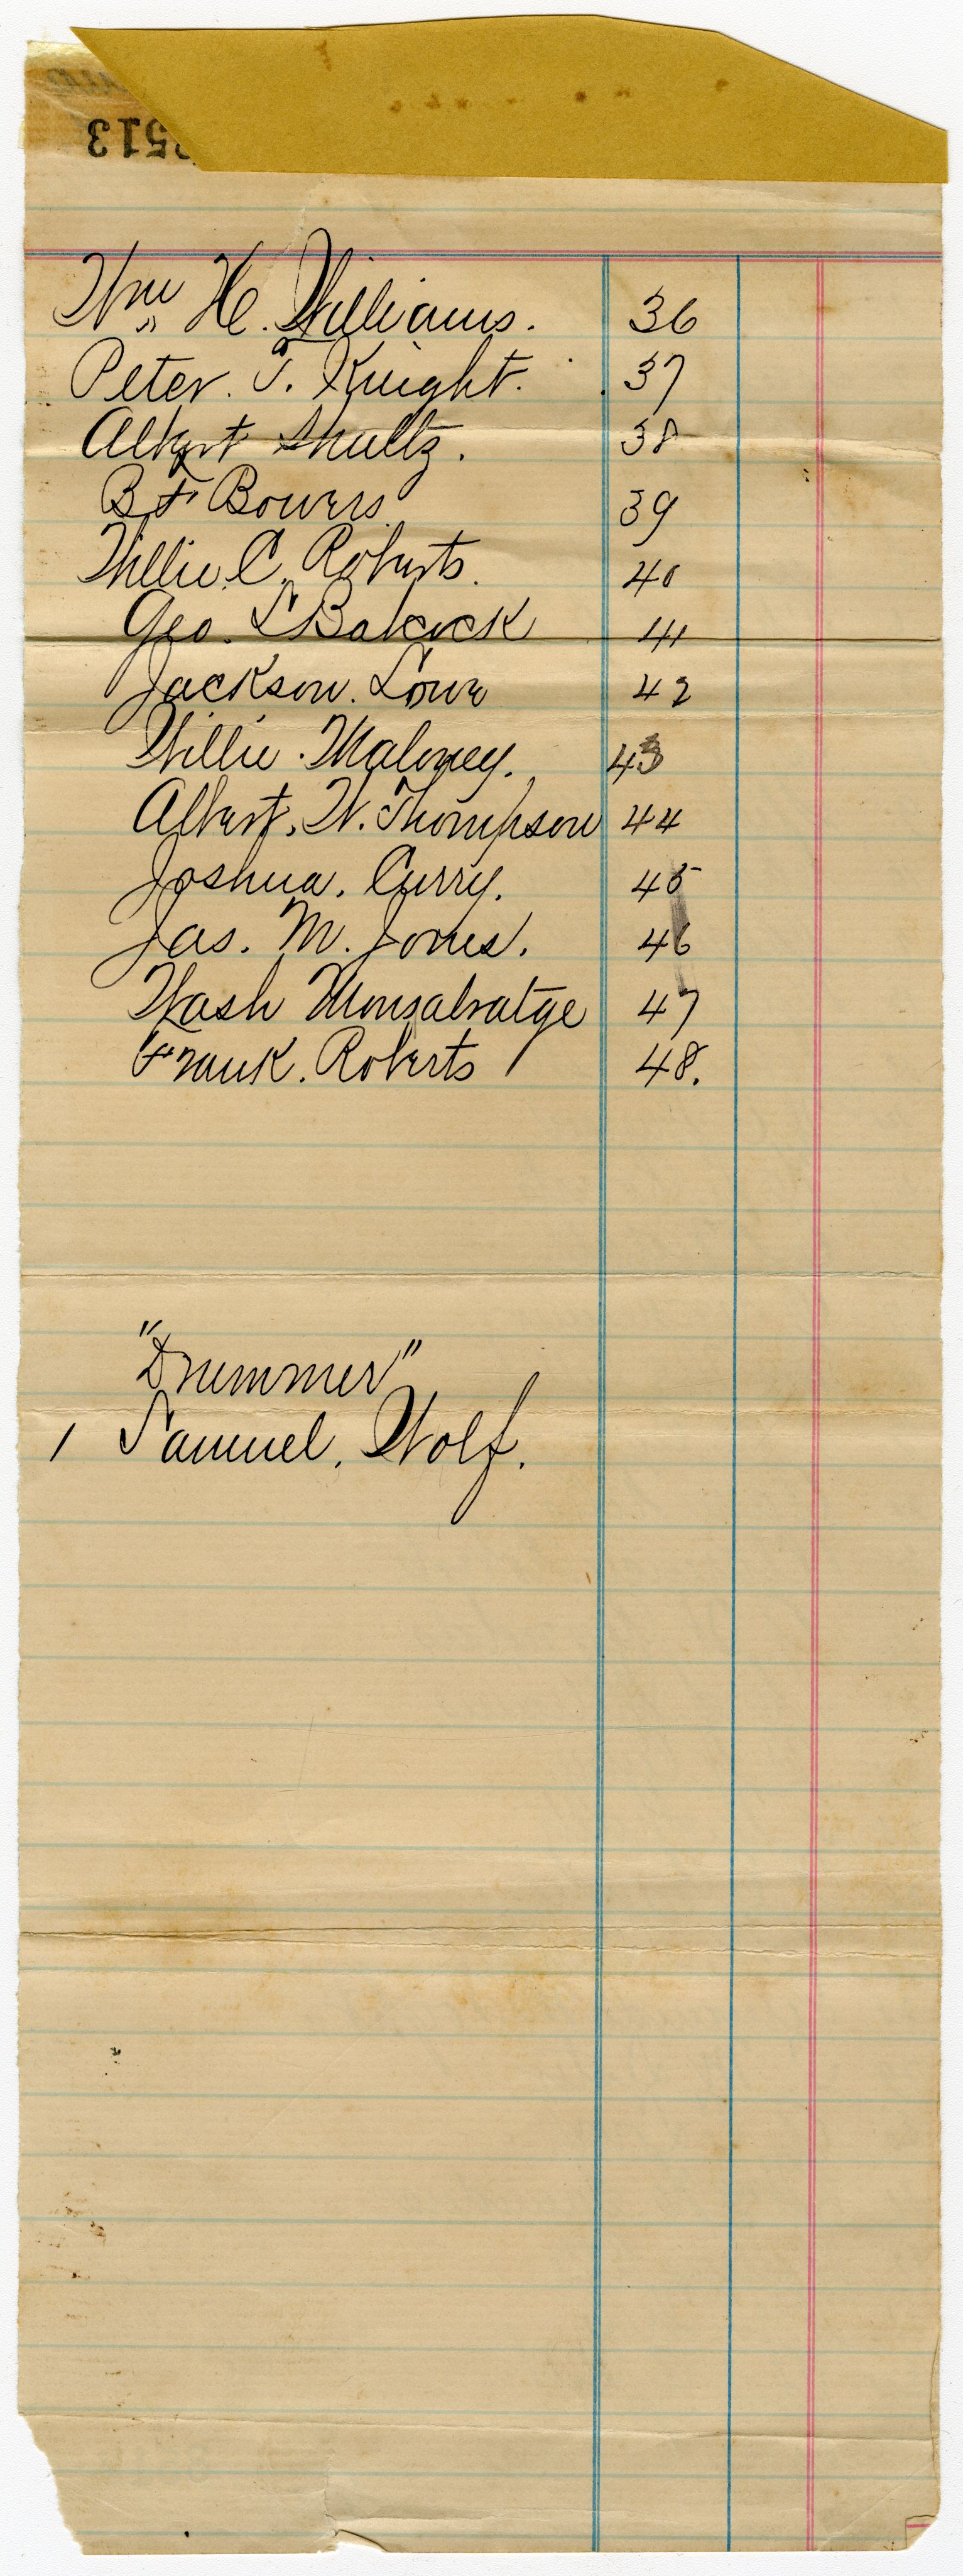 513
Wm H. Williams. 36
Peter. T. Knight. 37
Albert Shultz. 38
B F Bowers 39
Willie C. Roberts. 40
Geo. L Babcock 41
Jackson. Lowe 42
Willie. Maloney. 43
Albert. W. Thompson 44
Joshua. Curry. 45
Jas. M. Jones. 46
Wash Monsalvatge 47
Frank. Roberts 48.
"Drummer"
1 Samuel. Wolf.